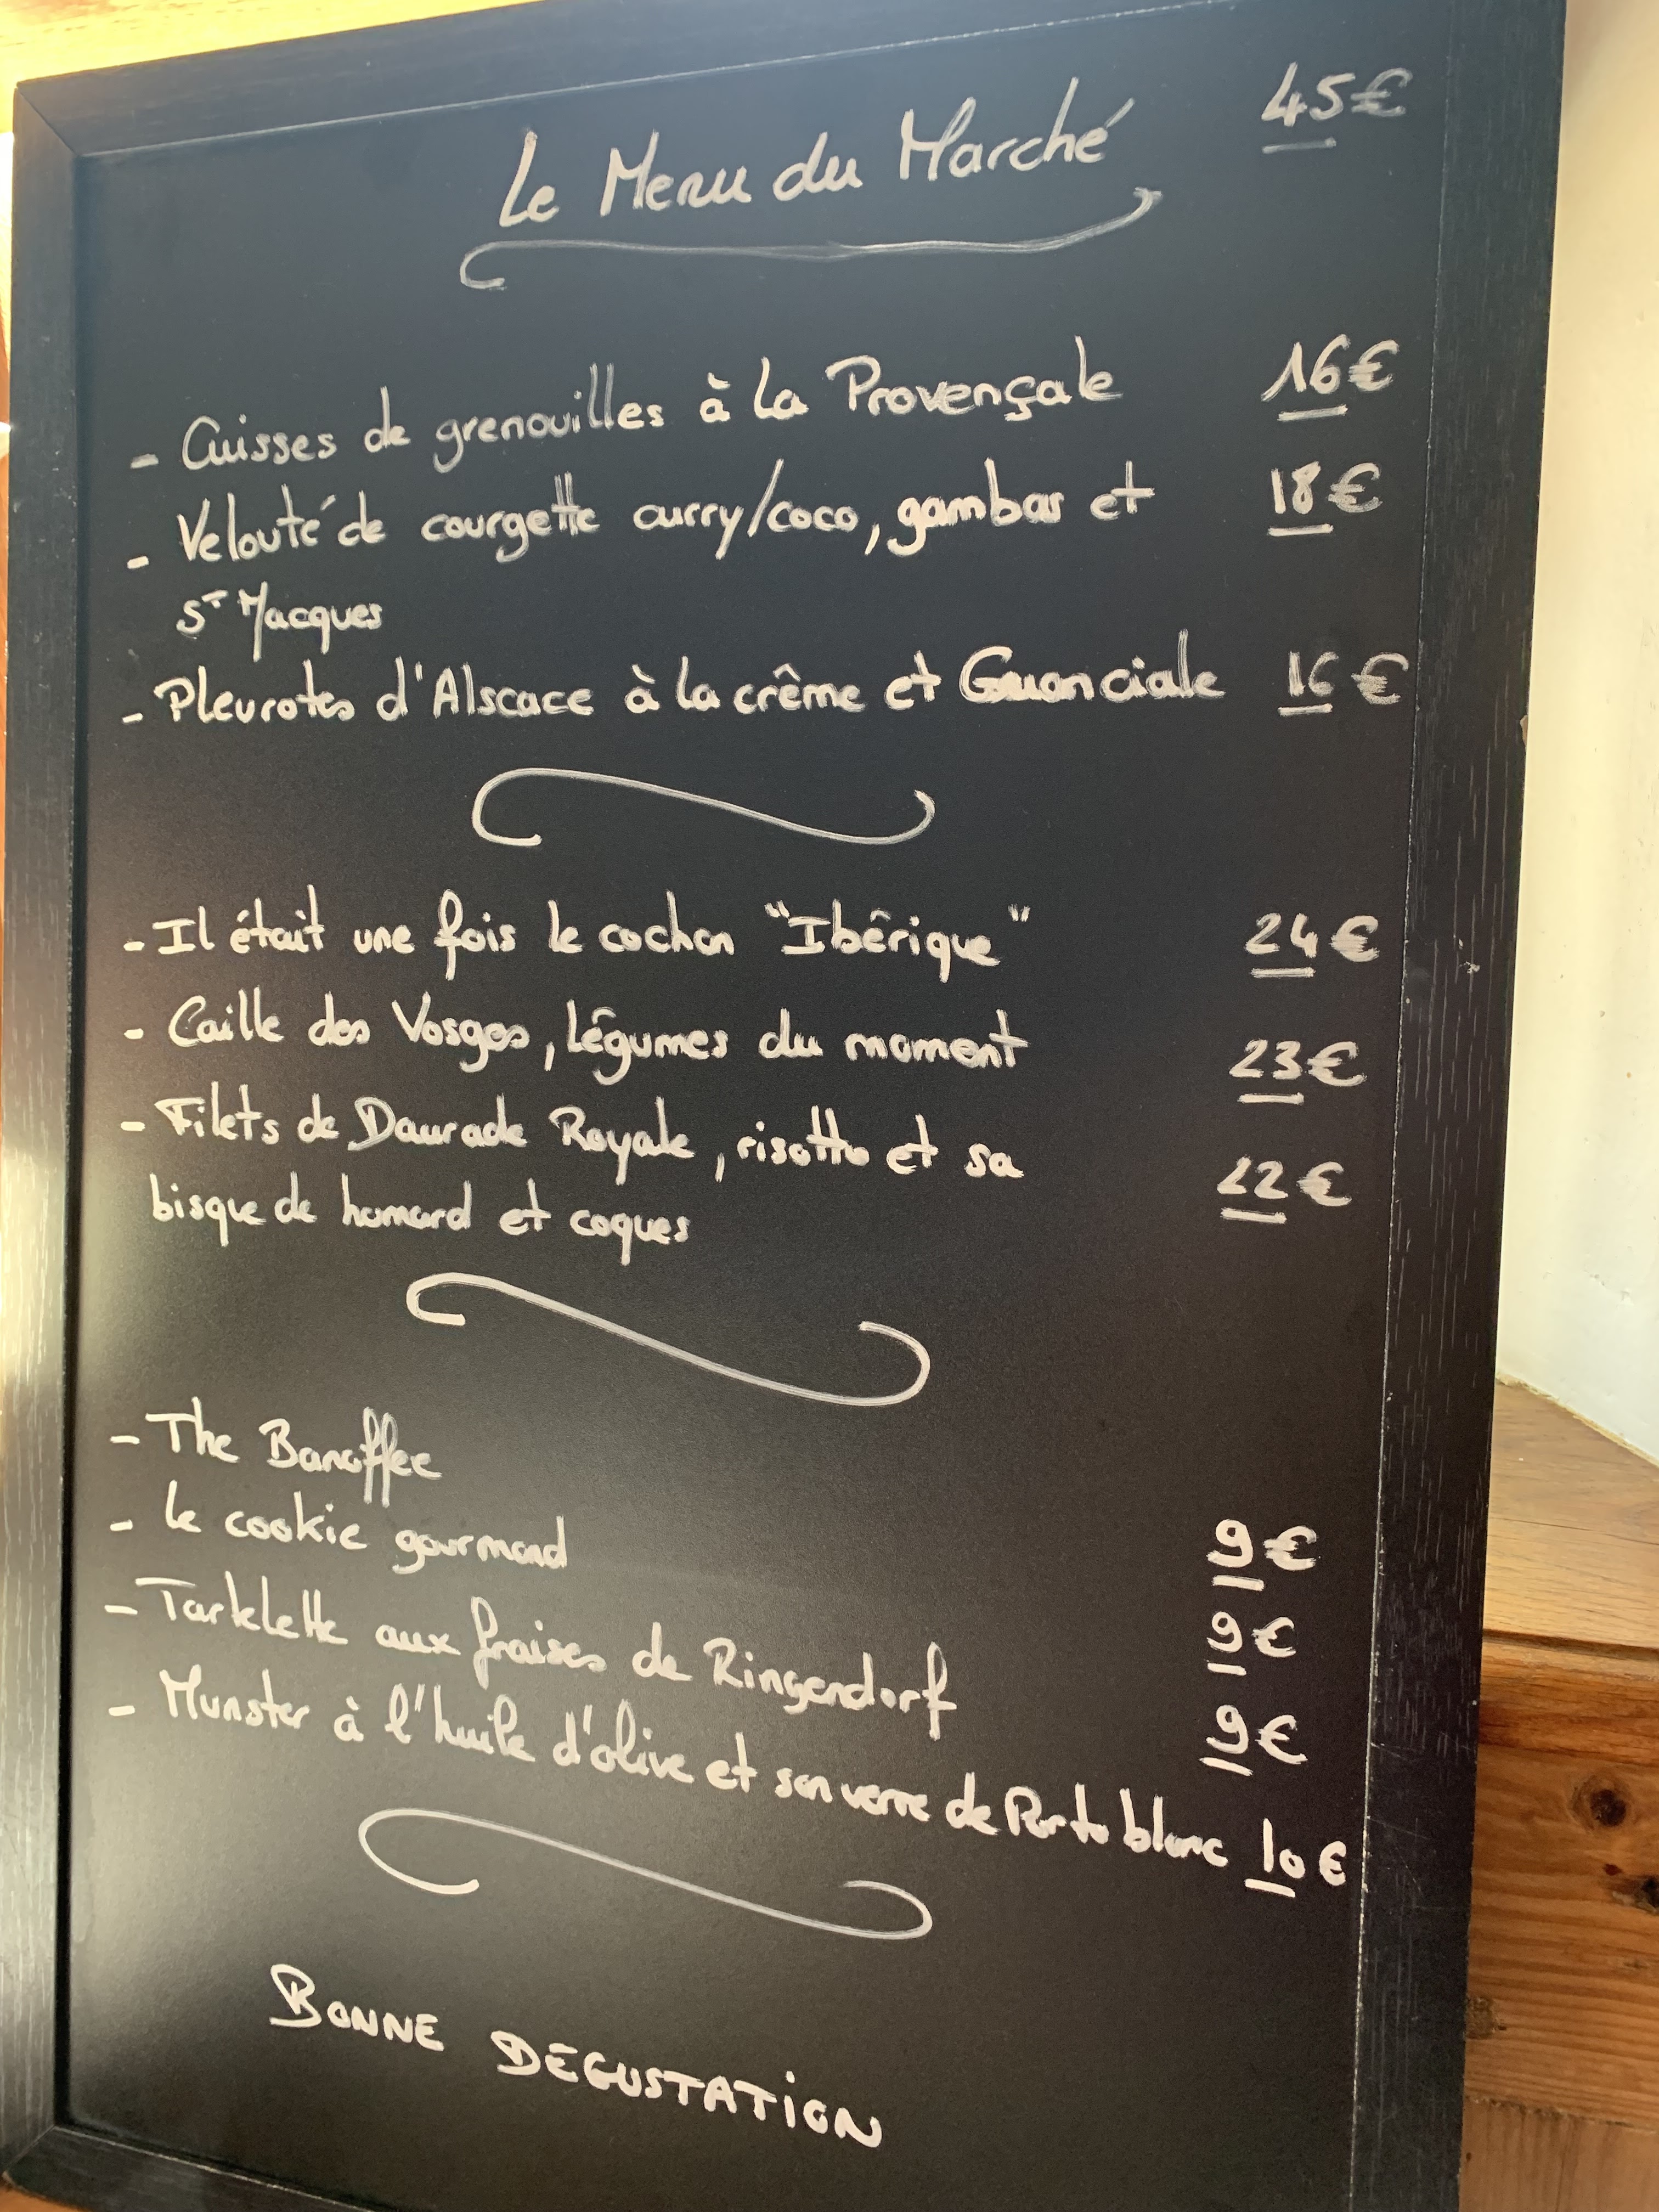 Le Menu du Marché 45€
- Cuisses de grenouilles à la Provençale 16€
- Velouté de courgette curry/coco, gambas et 18€
St Jacques
- Pleurotes d'Alscace à la crême et Guanciale 16€
- Il était une fois le cochon "Ibêrique" 24€
- Caille des Vosges, légumes du moment 23€
- Filets de Daurade Royale, risotto et sa
bisque de homard et coques 22€
- The Banoffee
- Le cookie gourmand 9€
- Tartelette aux fraises de Ringendorf 9€
- Munster à l'huile d'olive et son verre de Porto blanc 10€
9€
BONNE DÉGUSTATION